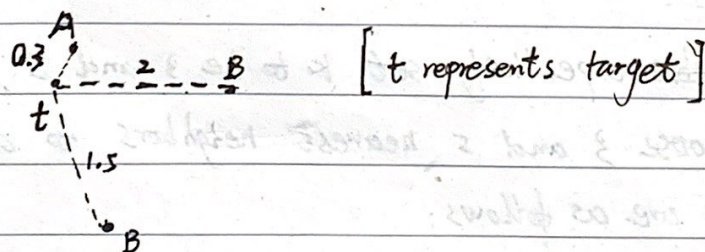 A
0.3
2
B
[t represents target]
t
1.5
B